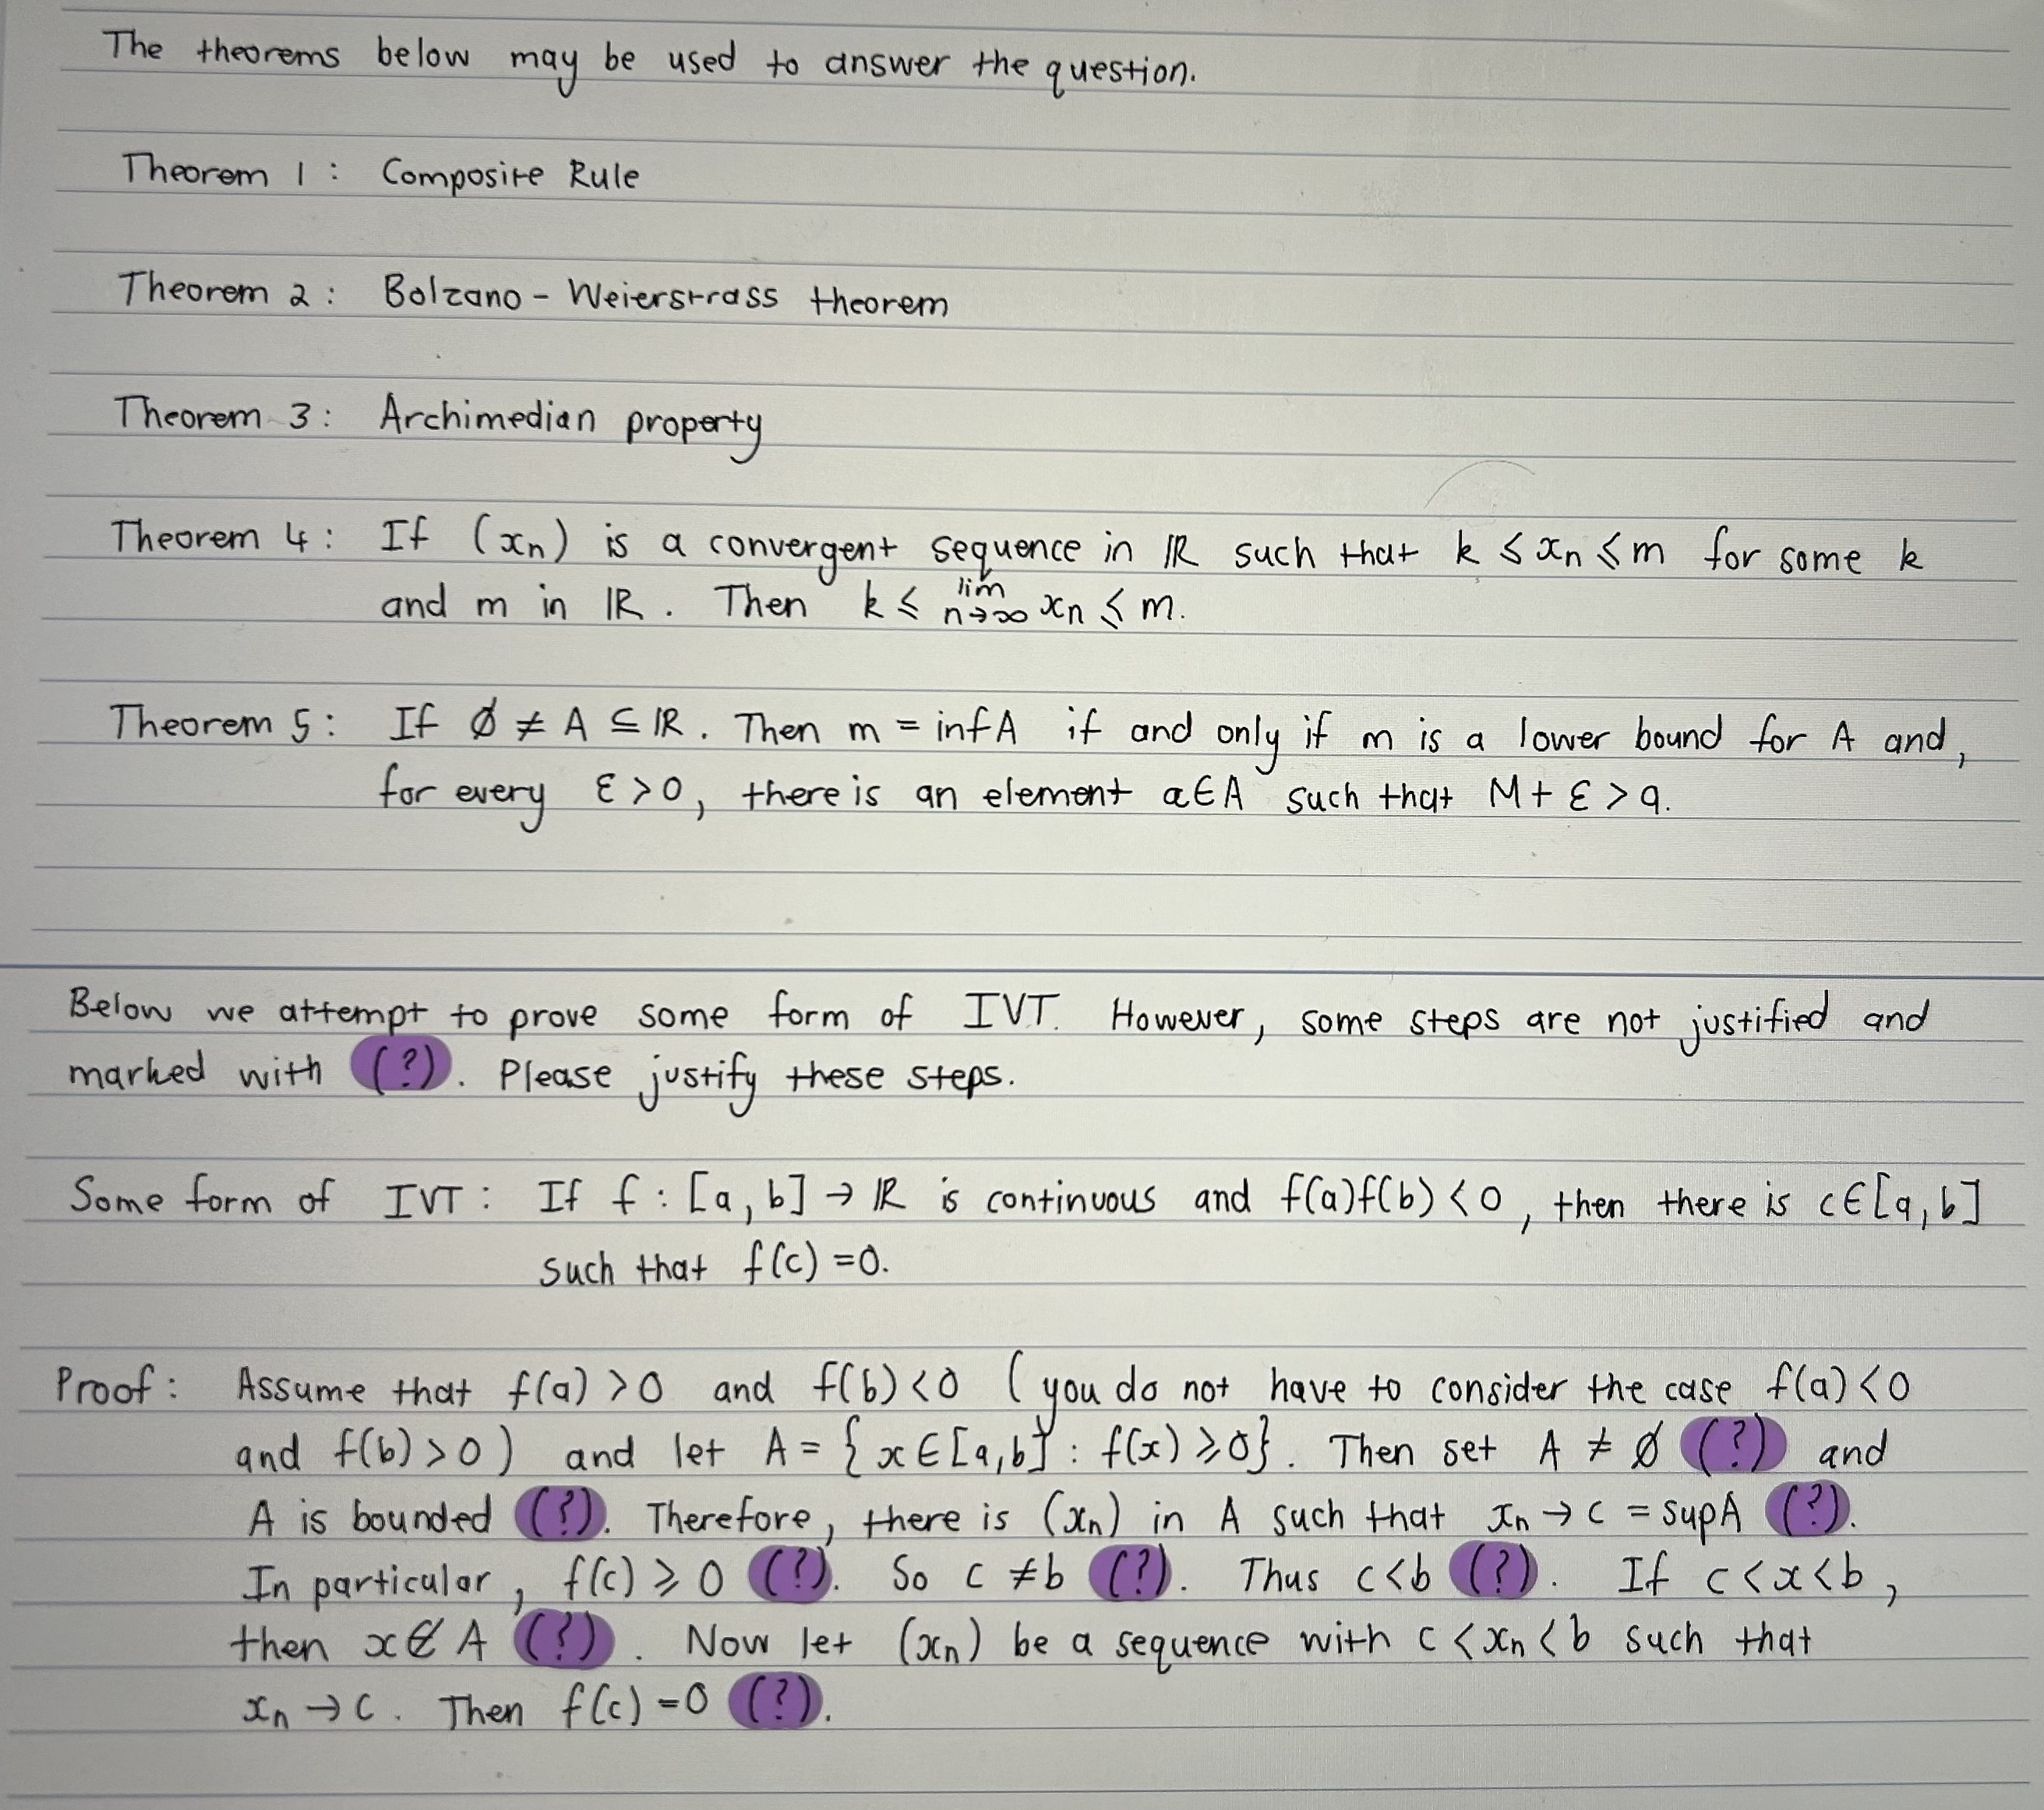 The theorems below may be used to answer the question.
Theorem 1 : Composite Rule
Theorem 2 : Bolzano - Weierstrass theorem
Theorem 3 : Archimedian property
Theorem 4 : If (xn) is a convergent sequence in ℝ such that k ≤ xn ≤ m for some k
and m in ℝ. Then k ≤ lim n→∞ xn ≤ m.
Theorem 5 : If ∅ ≠ A ⊆ ℝ. Then m = inf A if and only if m is a lower bound for A and,
for every ε > 0, there is an element a ∈ A such that M + ε > a.
Below we attempt to prove some form of IVT. However, some steps are not justified and
marked with (?). Please justify these steps.
Some form of IVT : If f : [a, b] → ℝ is continuous and f(a)f(b) < 0, then there is c ∈ [a, b]
such that f(c) = 0.
Proof : Assume that f(a) > 0 and f(b) < 0 (you do not have to consider the case f(a) < 0
and f(b) > 0) and let A = {x ∈ [a, b] : f(x) ≥ 0}. Then set A ≠ ∅ (?) and
A is bounded (?). Therefore, there is (xn) in A such that xn → c = sup A (?).
In particular, f(c) ≥ 0 (?). So c ≠ b (?). Thus c < b (?). If c < x < b,
then x ∉ A (?). Now let (xn) be a sequence with c < xn < b such that
xn → c. Then f(c) = 0 (?).